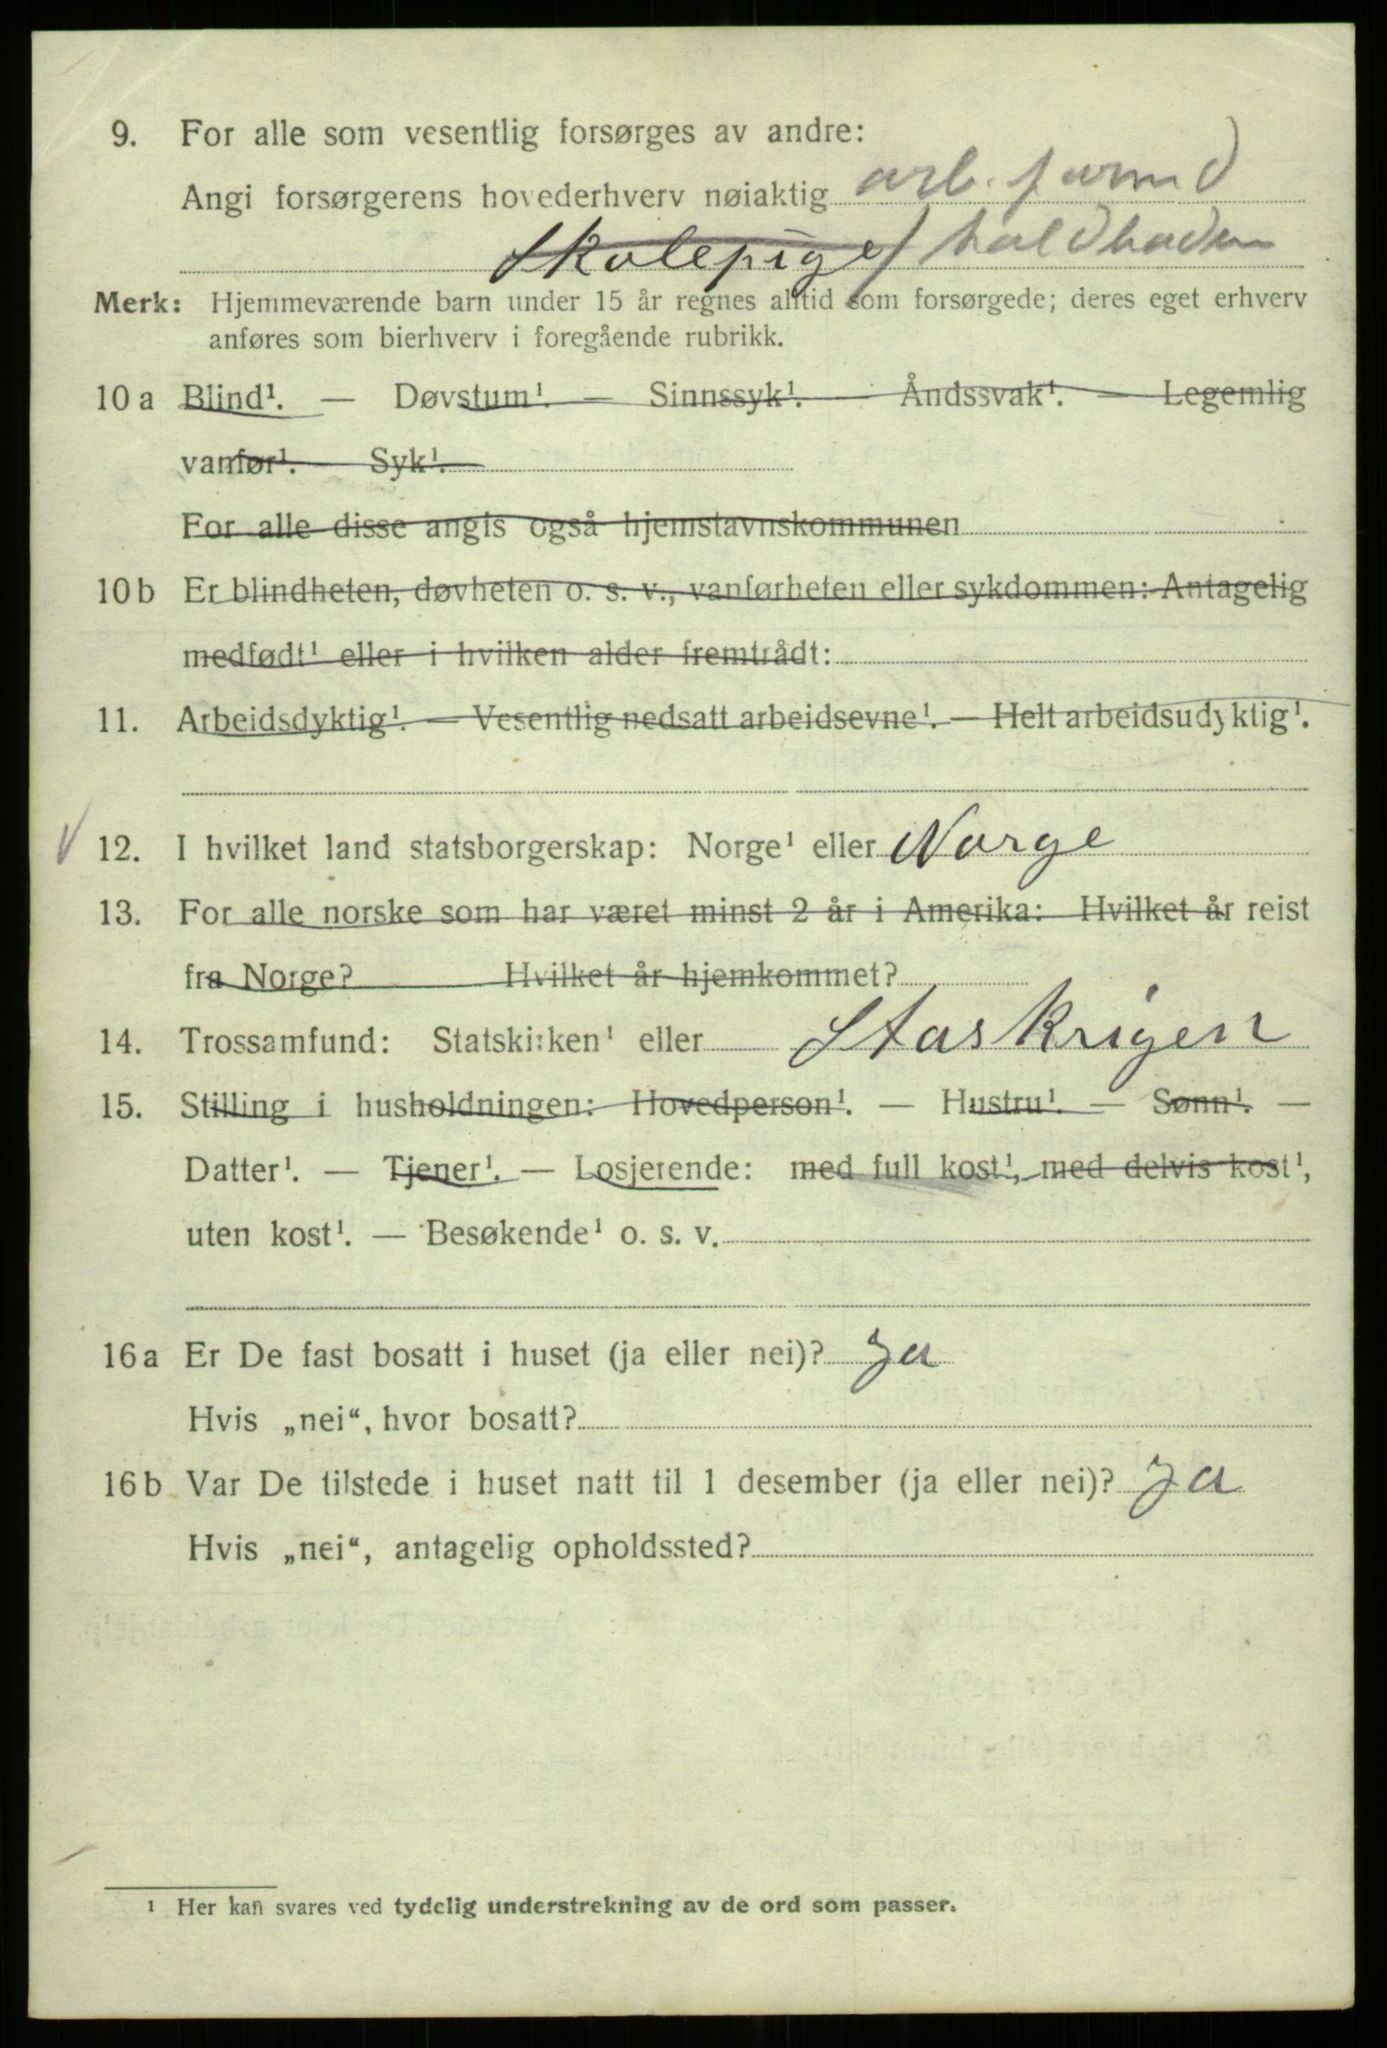 9. For alle som vesentlig forsørges av andre:
Angi forsørgerens hovederhverv nøiaktig arb. formd
Skolepige /
Merk: Hjemmeværende barn under 15 år regnes alltid som forsørgede; deres eget erhverv
anføres som bierhverv i foregående rubrikk.
10a Blind¹. — Døvstum¹. — Sinnssyk¹. — Åndssvak¹. — Legemlig
vanfør¹. Syk¹.
For alle disse angis også hjemstavnskommunen
10b Er blindheten, døvheten o. s. v., vanførheten eller sykdommen: Antagelig
medfødt¹ eller i hvilken alder fremtrådt:
11. Arbeidsdyktig¹. — Vesentlig nedsatt arbeidsevne¹. — Helt arbeidsudyktig¹.
V 12. I hvilket land statsborgerskap: Norge¹ eller Norge
13. For alle norske som har været minst 2 år i Amerika: Hvilket år reist
fra Norge? Hvilket år hjemkommet?
14. Trossamfund: Statskirken¹ eller Staskrigen
15. Stilling i husholdningen: Hovedperson¹. — Hustru¹. — Sønn¹. —
Datter¹. — Tjener¹. — Losjerende: med full kost¹, med delvis kost¹,
uten kost¹. — Besøkende¹ o. s. v.
16a Er De fast bosatt i huset (ja eller nei)? Ja
Hvis „nei“, hvor bosatt?
16b Var De tilstede i huset natt til 1 desember (ja eller nei)? Ja
Hvis „nei“, antagelig opholdssted?
¹ Her kan svares ved tydelig understrekning av de ord som passer.